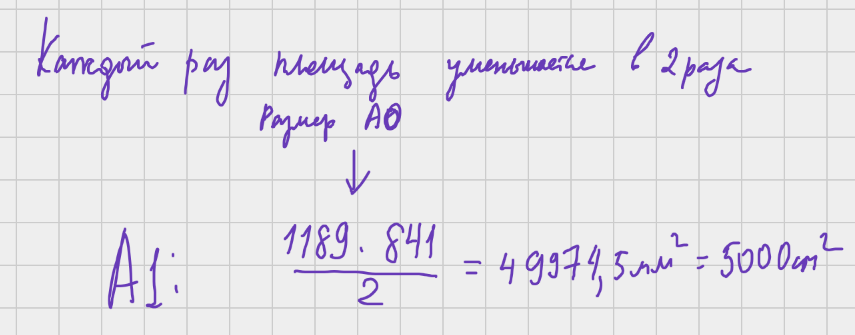 Каждый раз площадь уменьшается в 2 раза
Размер А0
↓
А1: 1189 · 841 / 2 = 49974,5 мм² = 5000 cm²